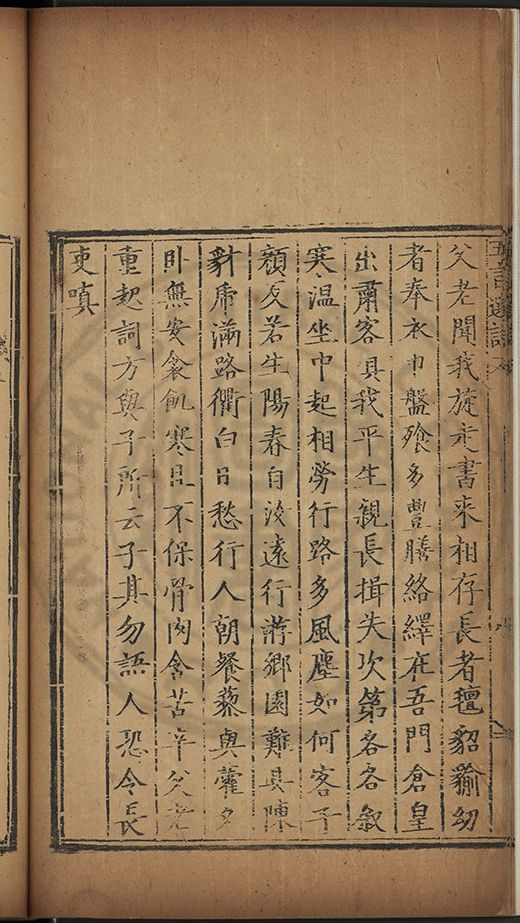 父老聞我旋走書來相存長者氊貂貐幼
者奉衣巾盤飱多豐膳絡繹在吾門倉皇
出肅客具我平生親長揖失次第各各敘
寒温坐中起相勞行路多風塵如何客子
顏反若生陽春自汝遠行游鄉園難具陳
豺虎滿路衢白日愁行人朝餐藜與藿夕
卧無安衾飢寒且不保骨肉含苦辛父老
重起詞方與子所云子其勿語人恐令長
吏嗔